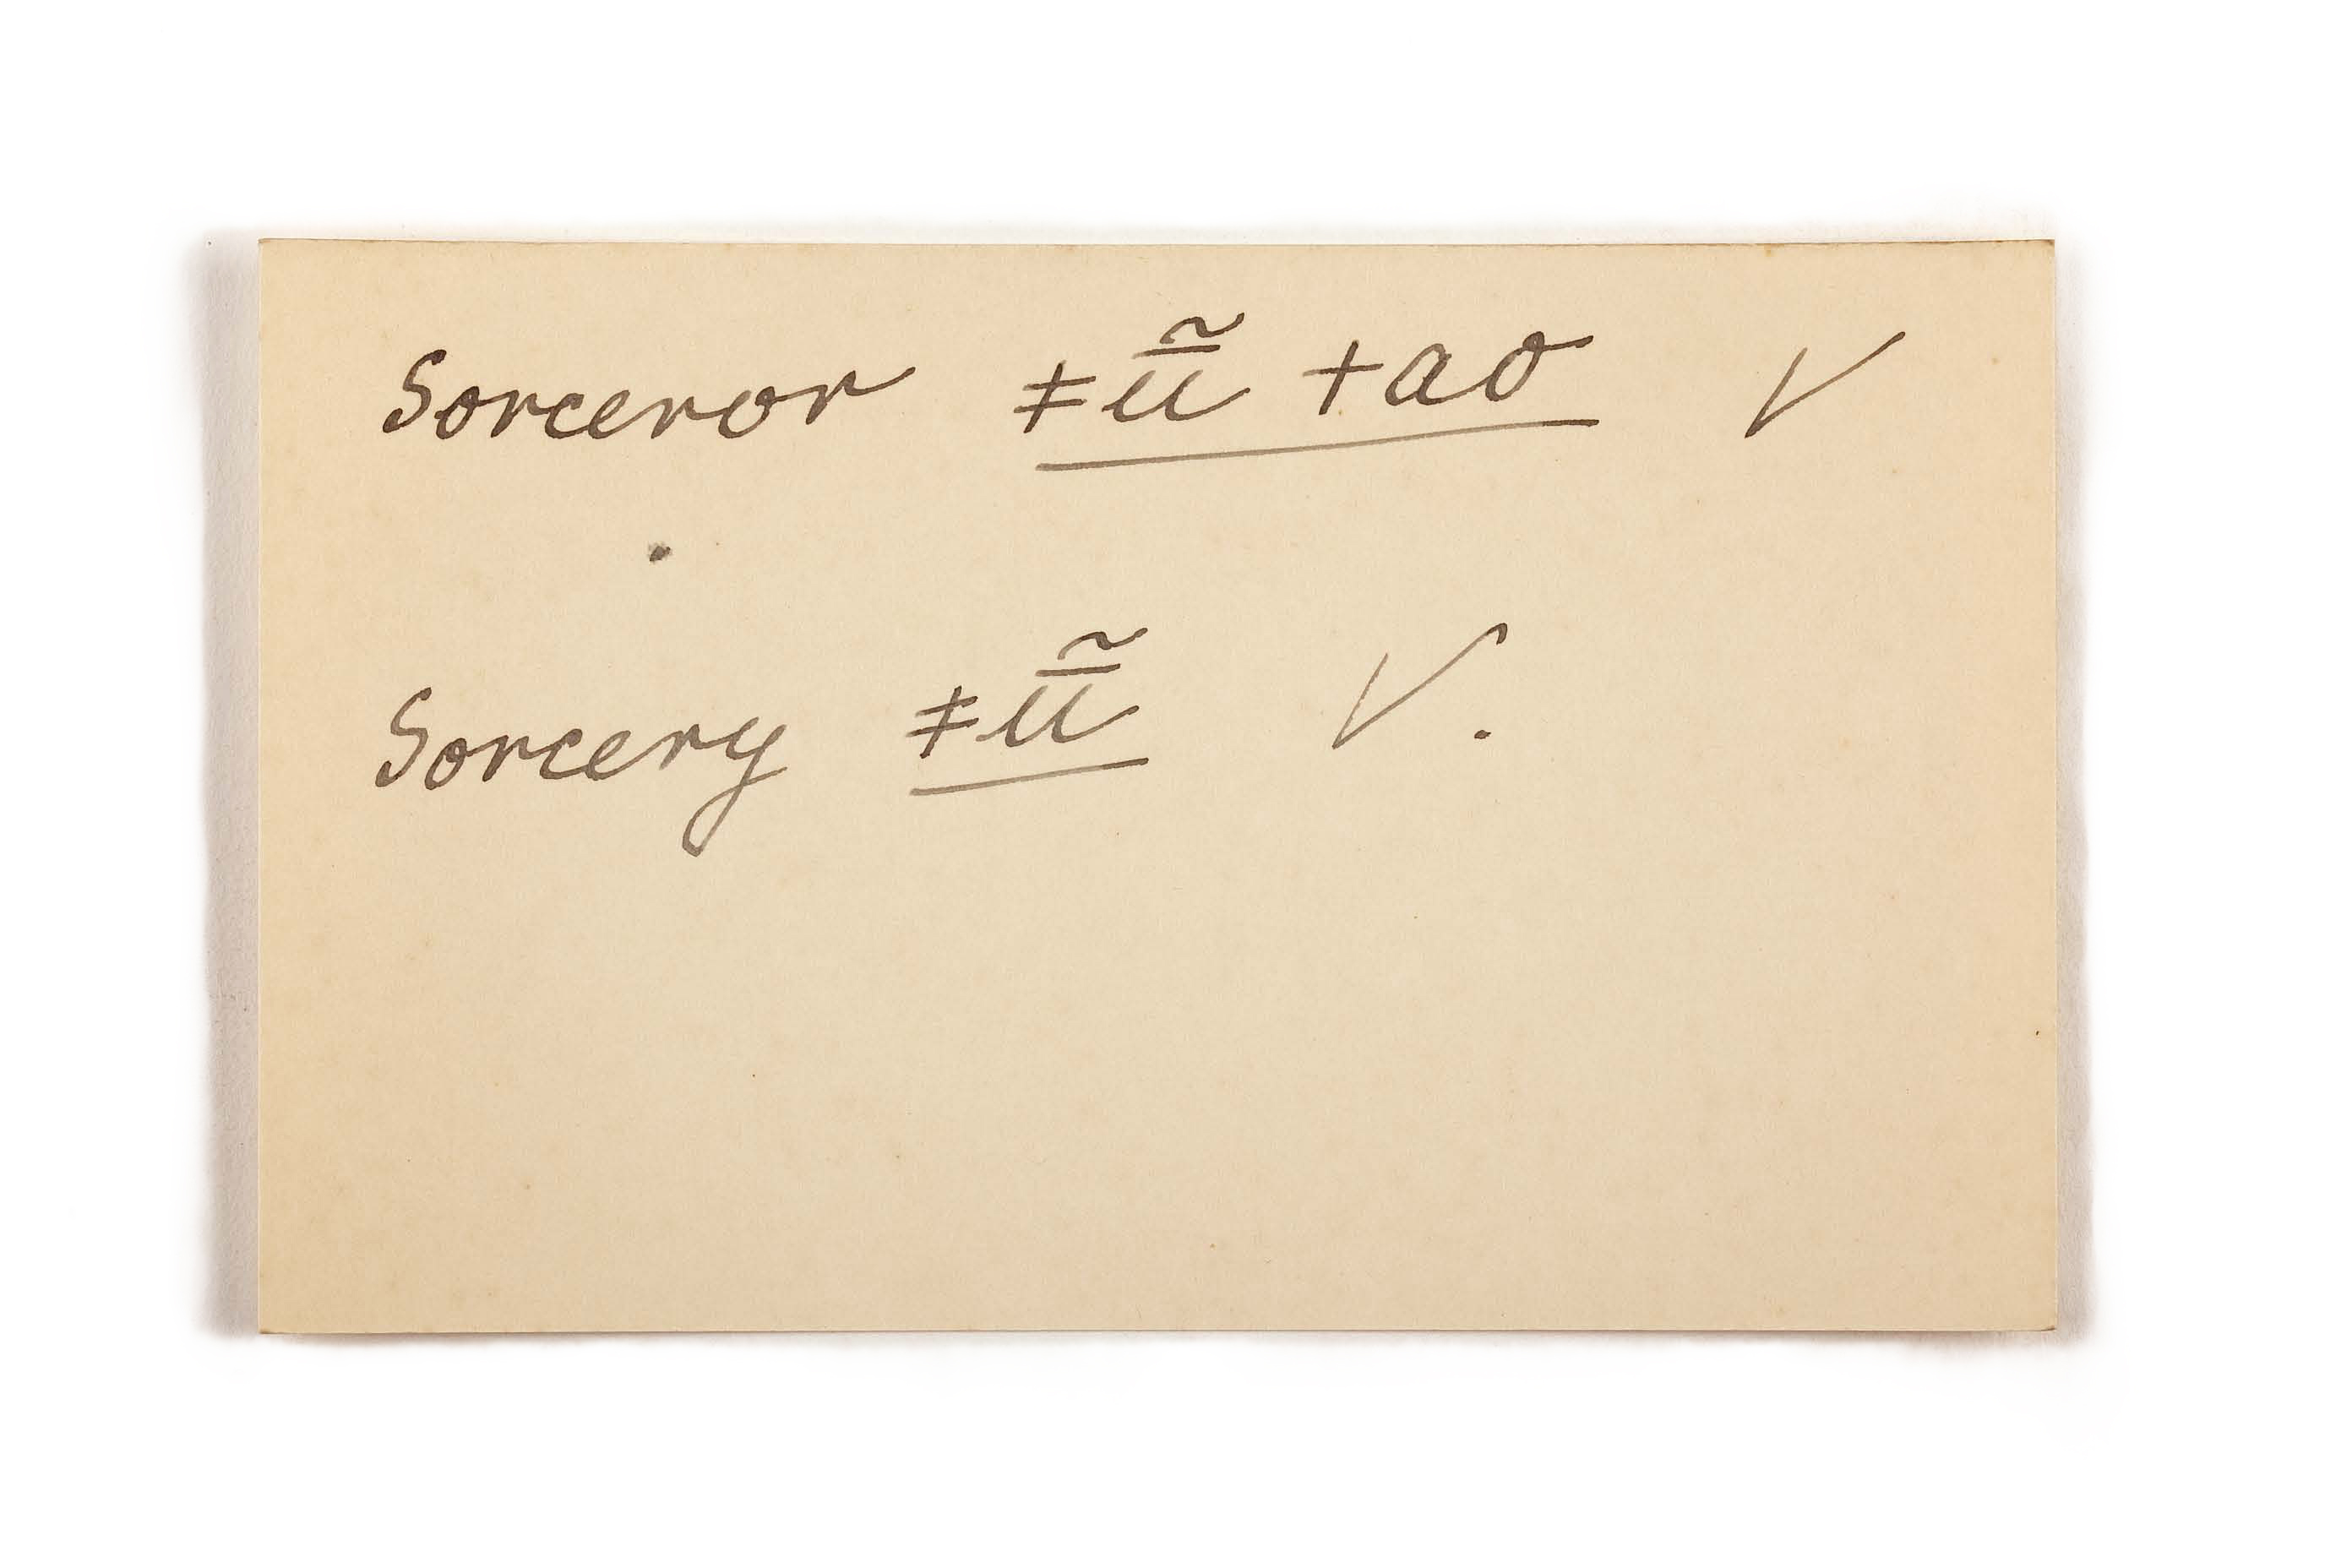 Sorceror ǂū̃ +ao ✓
Sorcery ǂū̃ ✓.